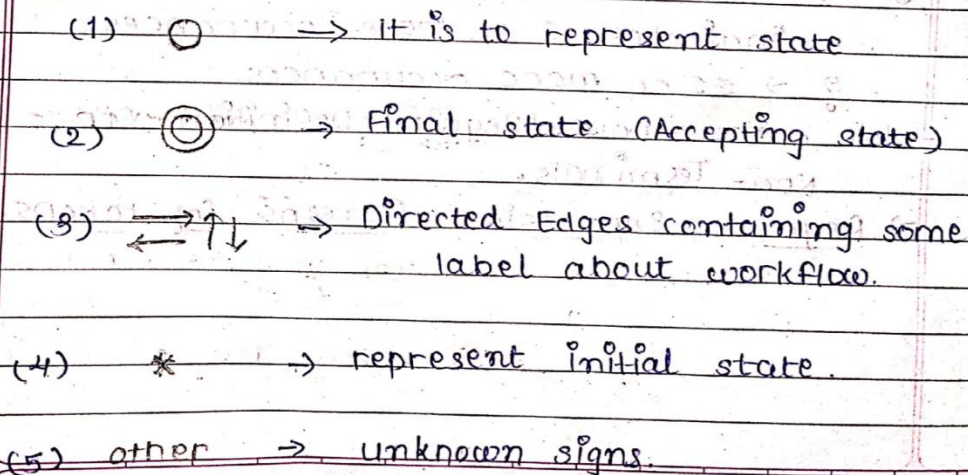 (1) ○ → It is to represent state
(2) ◎ → Final state (Accepting state)
(3) → ← ↑ ↓ → Directed Edges containing some
label about workflow.
(4) * → represent initial state.
(5) other → unknown signs.